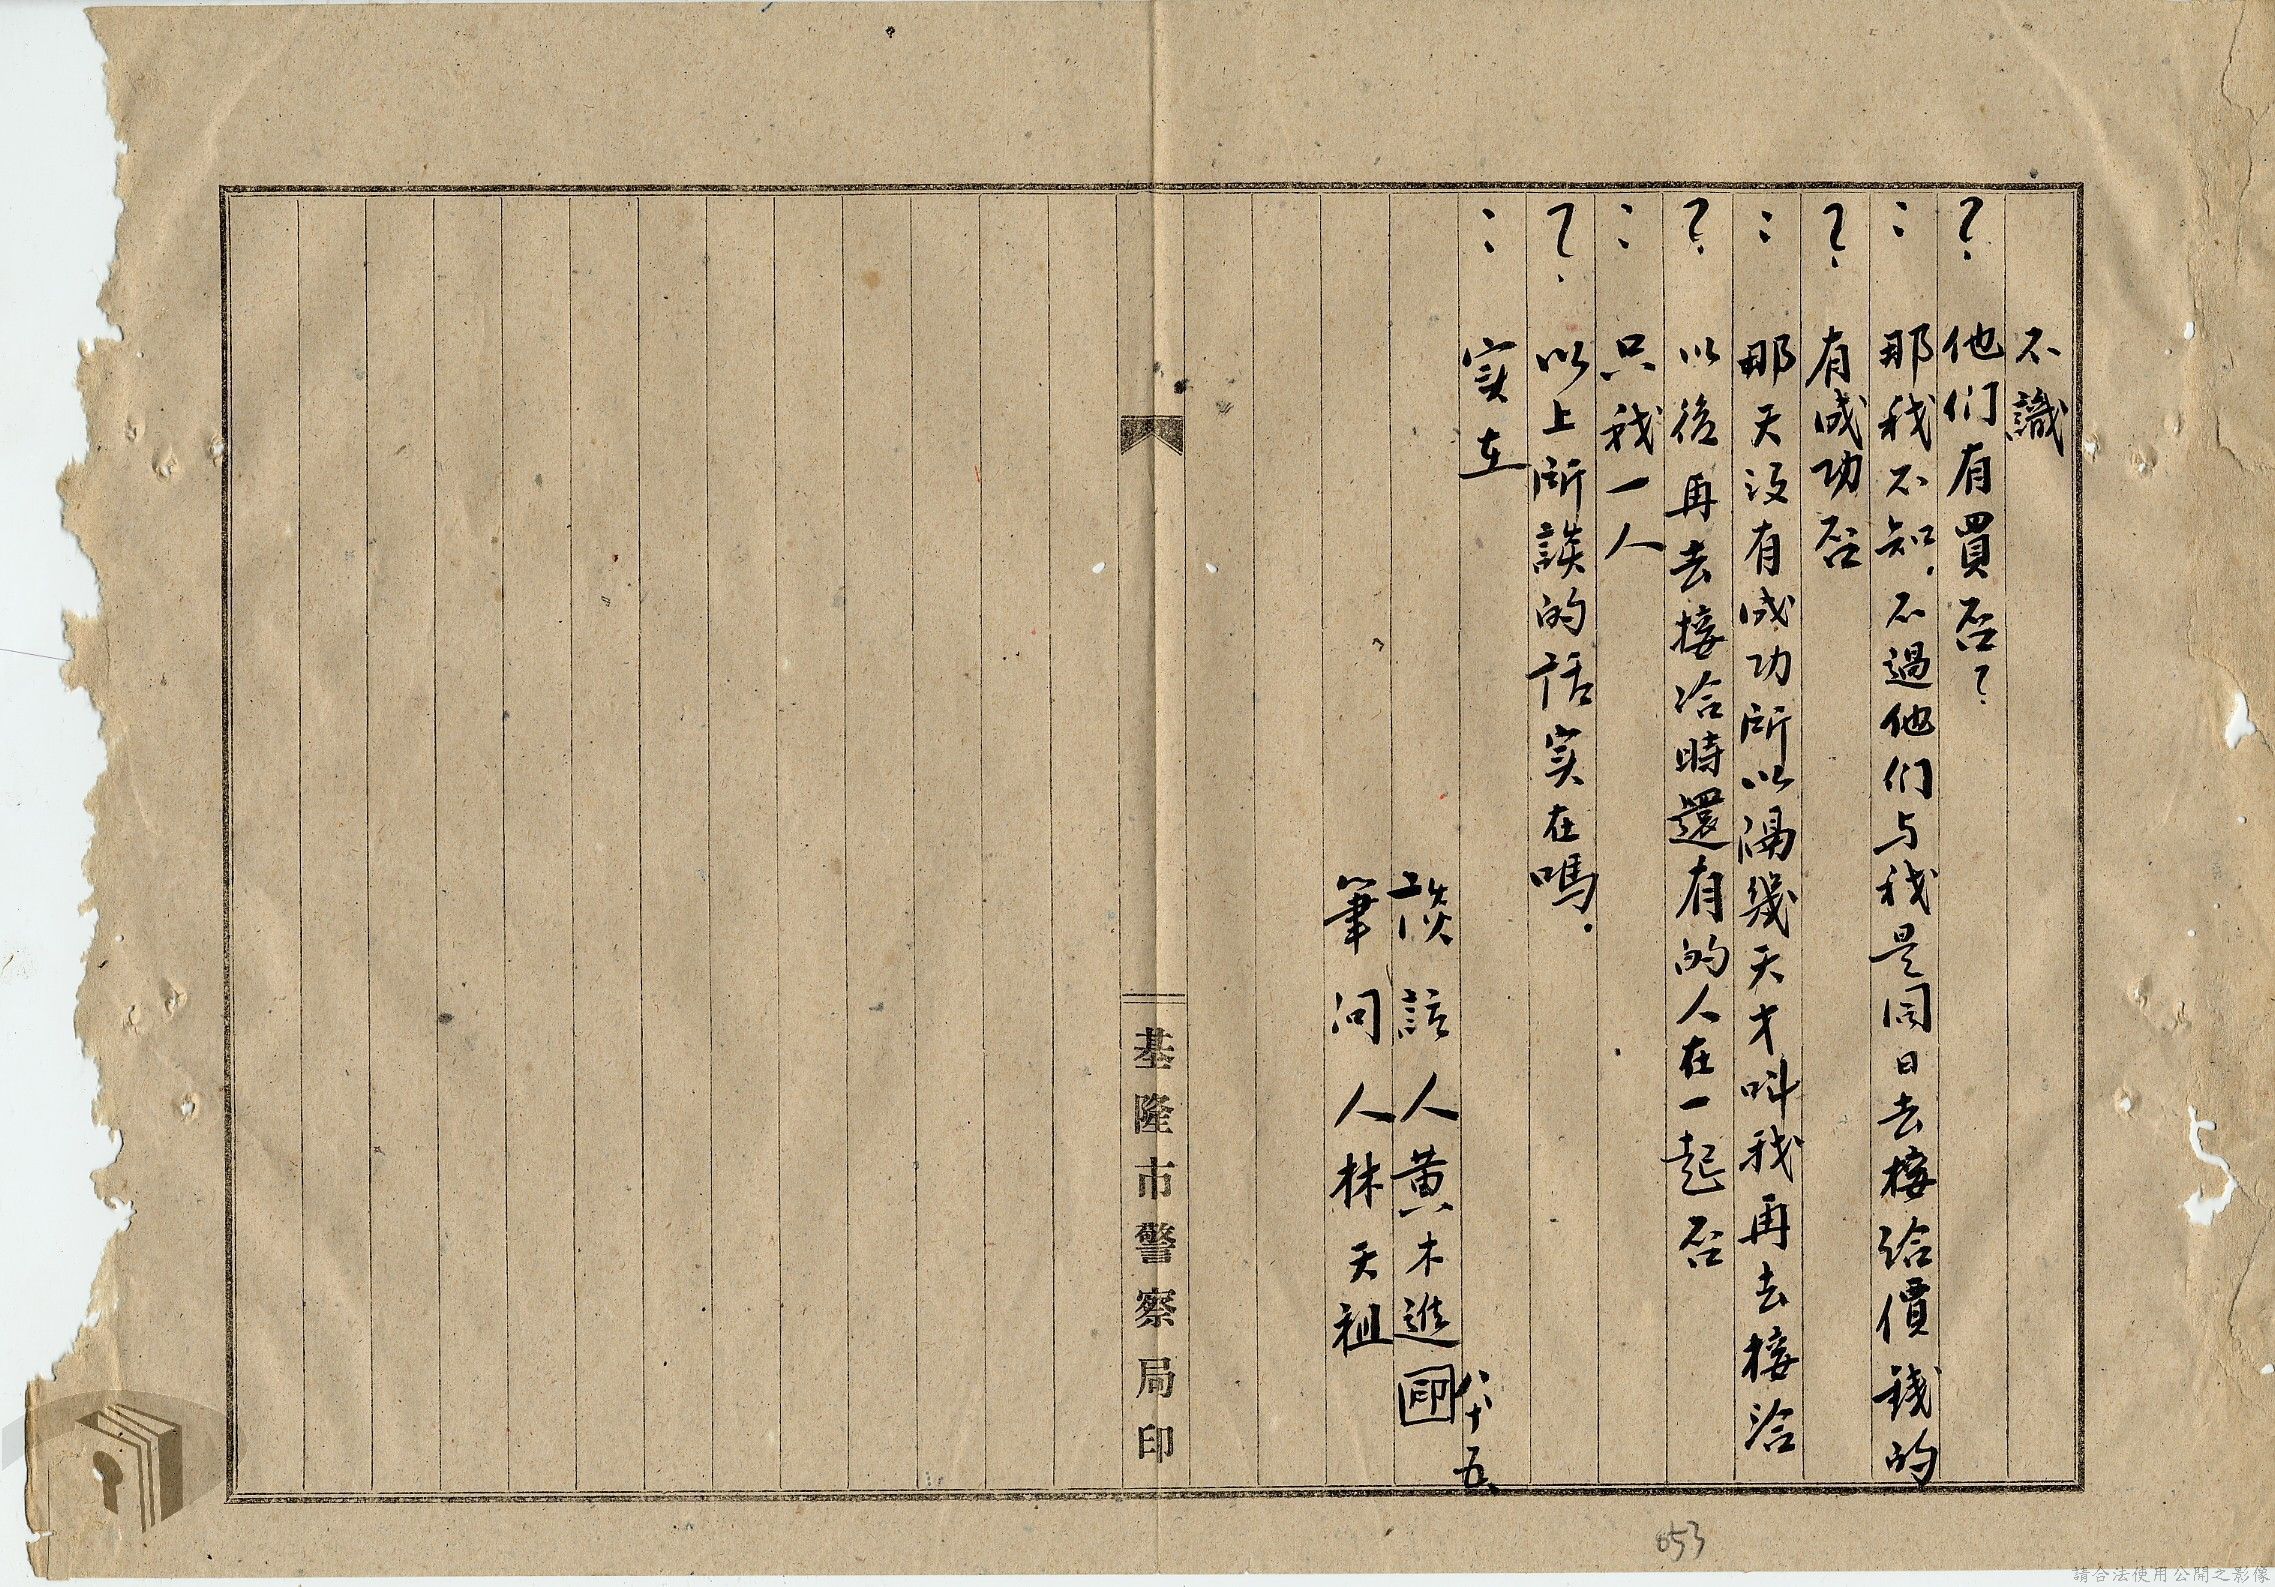 不識
？他们有買否？
：那我不知．不過他们与我是同日去接給價錢的
？有成功否
：那天没有成功所以隔幾天才叫我再去接洽
？以後再去接洽時還有的人在一起否
：只我一人
？以上所談的话实在嗎．
：实在
八十五、
談話人黄木進印
筆问人林天祖
基隆市警察局印
053
請合法使用公開之影像